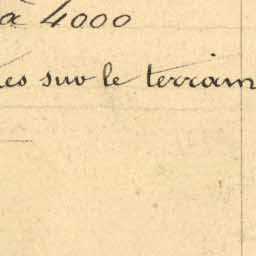 à 4000
es sur le terrain